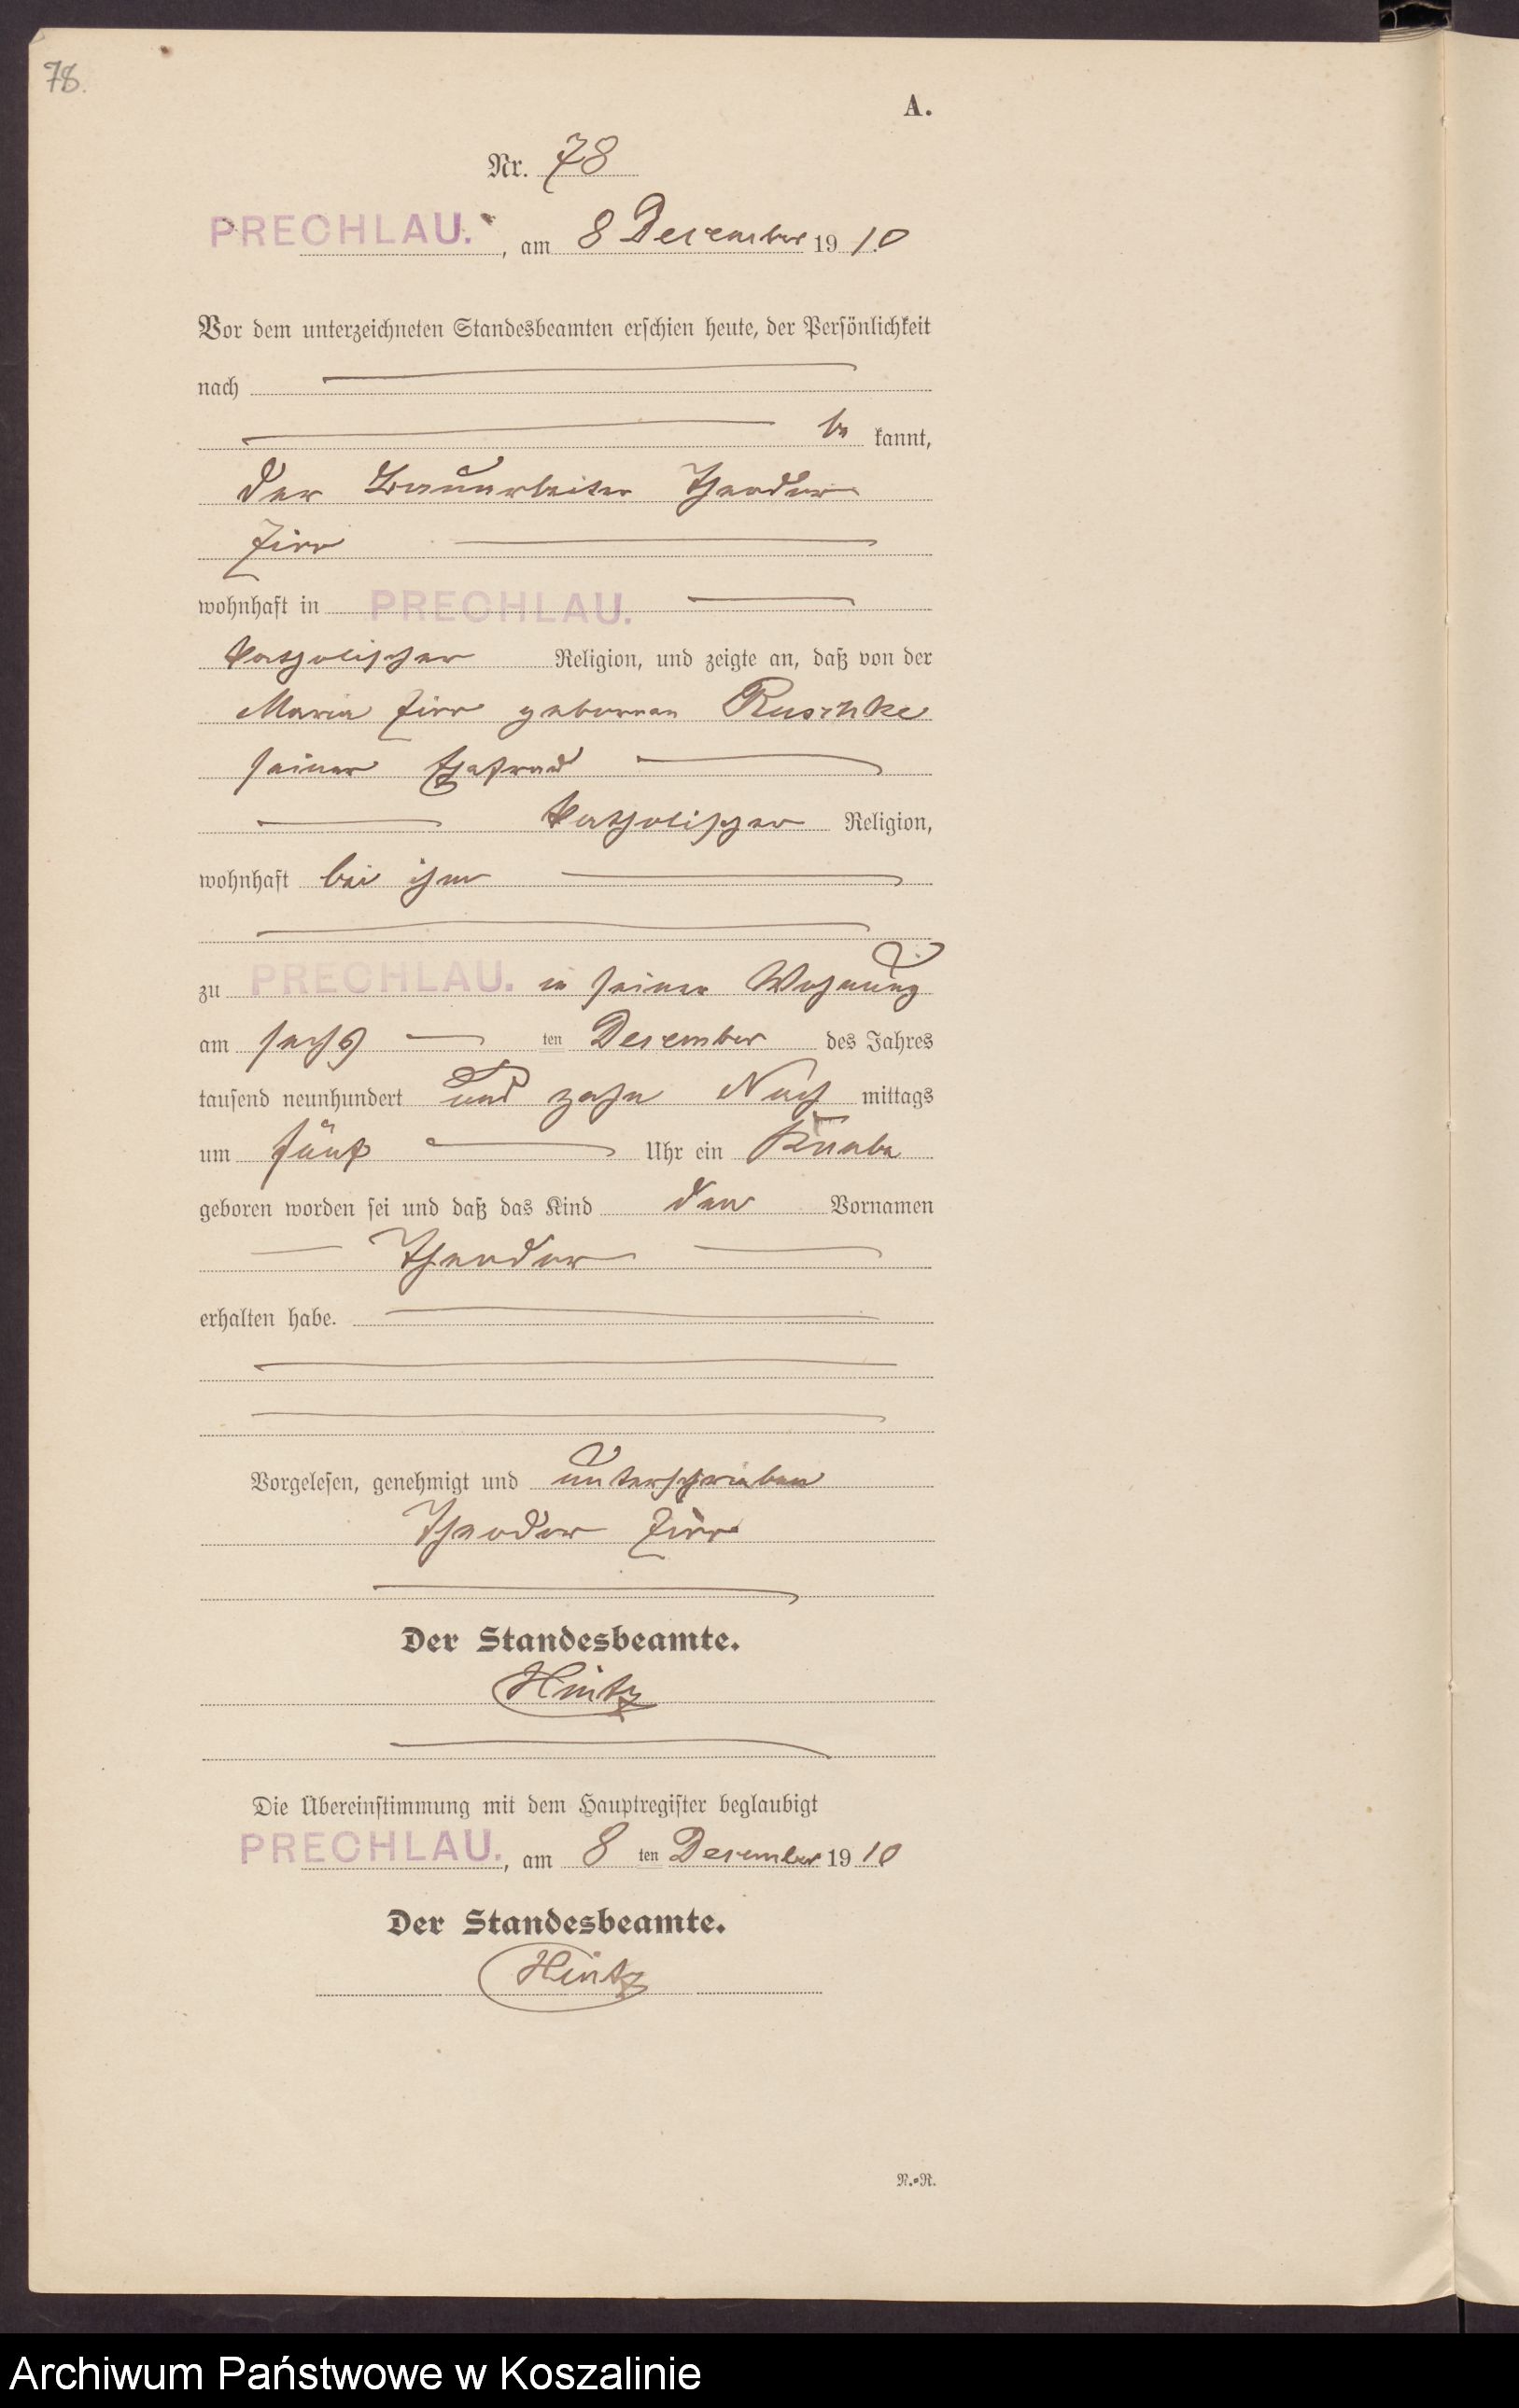 78.
A.
Nr. 78
PRECHLAU. , am 8 December 1910
Vor dem unterzeichneten Standesbeamten erschien heute, der Persönlichkeit
nach
be kannt,
der Bauarbeiter Theodor
Zirr
wohnhaft in PRECHLAU.
katholischer Religion, und zeigte an, daß von der
Maria Zirr geborenen Ruschke
seiner Ehefrau
katholischer Religion,
wohnhaft bei ihm
zu PRECHLAU. in seiner Wohnung
am sechs ten December des Jahres
tausend neunhundert und zehn Nach mittags
um fünf Uhr ein Knabe
geboren worden sei und daß das Kind den Vornamen
Theodor
erhalten habe.
Vorgelesen, genehmigt und unterschrieben
Theodor Zirr
Der Standesbeamte.
Hintz
Die Übereinstimmung mit dem Hauptregister beglaubigt
PRECHLAU. , am 8 ten December 1910
Der Standesbeamte.
Hintz
N.=R.
Archiwum Państwowe w Koszalinie